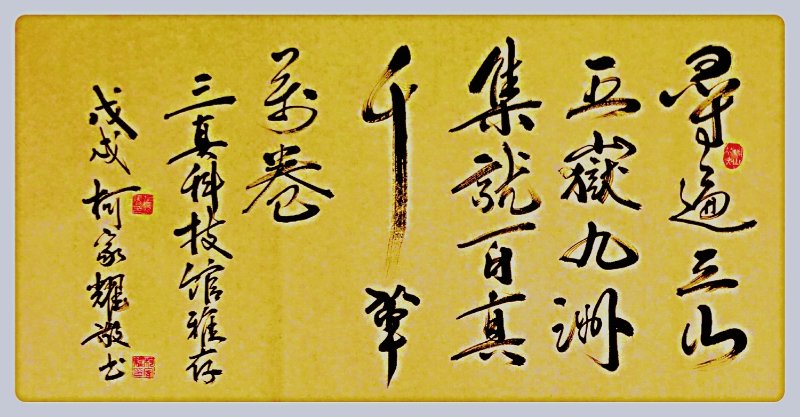 尋遍三山
五嶽九洲
集就百真
千筆
萬卷
三真科技館雅存
戊戌柯家耀敬书